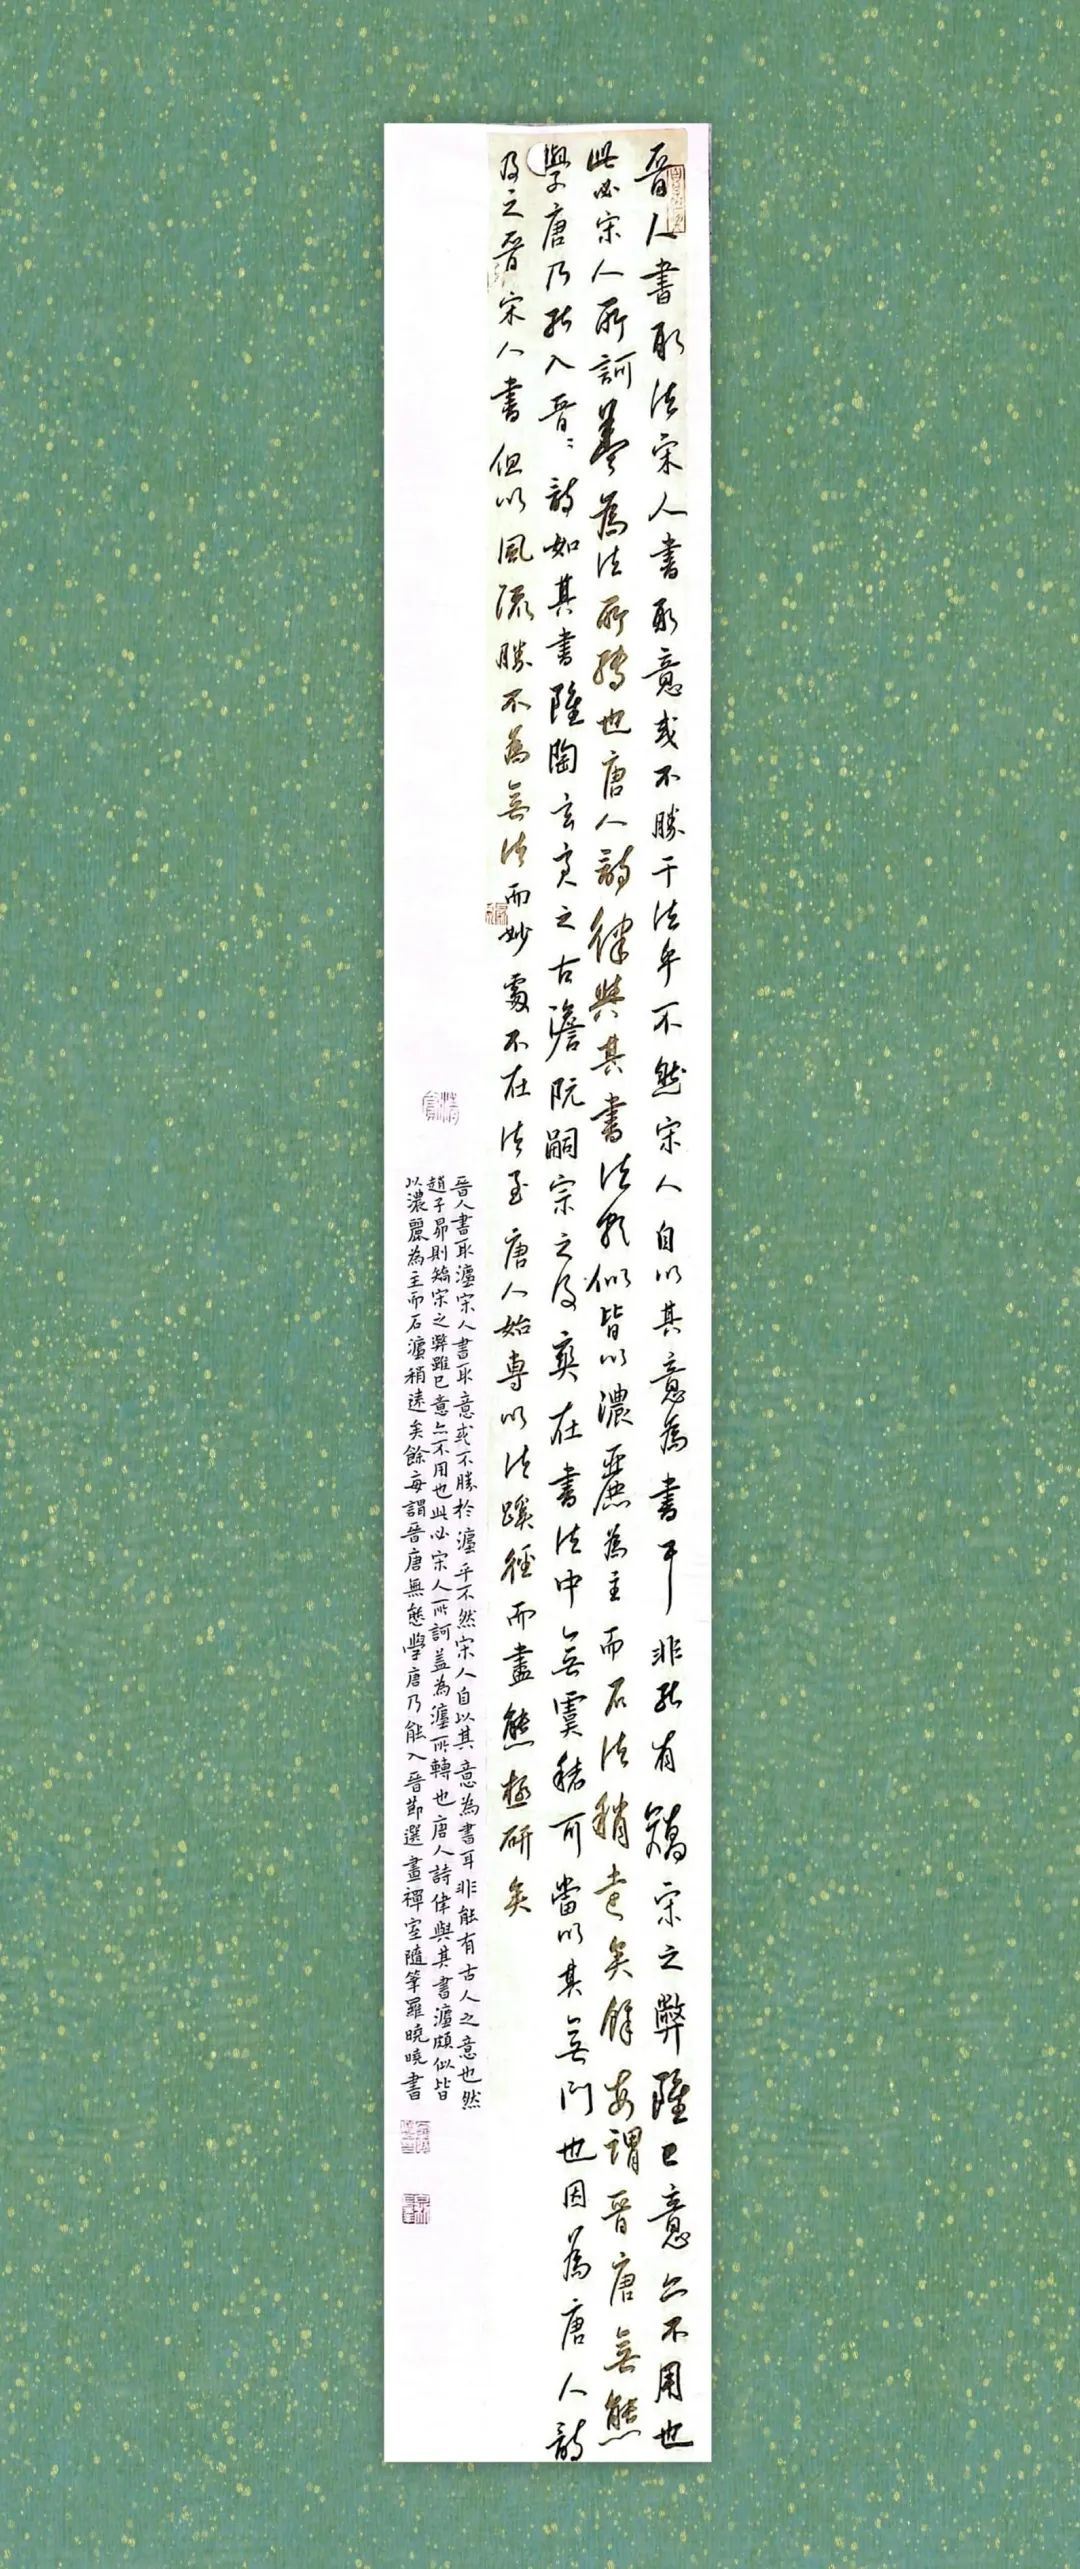 晋人書取法宋人書取意或不勝于法乎不然宋人自以其意為書耳非能有矯宋之弊雖已意亦不用也
此必宋人所訶蓋為法所轉也唐人詩律與其書法頗似皆以濃麗為主而石法稍遠矣餘每謂晋唐無態
學唐乃能入晋晋詩如其書雖陶玄亮之古澹阮嗣宗之俊爽在書法中無虞褚可當以其無門也因為唐人詩
及之晋宋人書但以風流勝不為無法而妙處不在法至唐人始專以法蹊徑而盡態極研矣
晋人書取灋宋人書取意或不勝於灋乎不然宋人自以其意為書耳非能有古人之意也然
趙子昴則矯宋之弊雖已意亦不用也此必宋人所訶蓋為灋所轉也唐人詩律與其書灋頗似皆
以濃麗為主而石灋稍遠矣餘每謂晋唐無態學唐乃能入晋節選畫禪室隨筆羅曉曉書